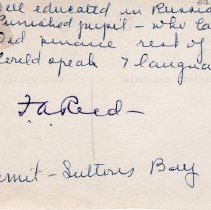 ell educated in Russia
Punished pupil - who la
Did penance rest of
Could speak 7 langua
F.A. Reed -
rmit - Suttons Bay